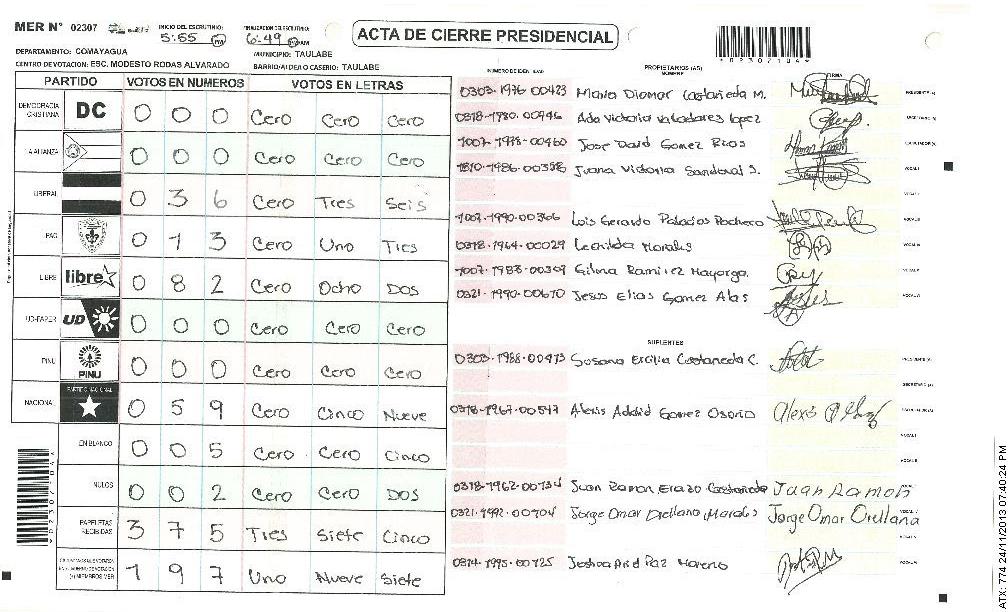 MER N° 02307
INICIO DEL ESCRUTINIO: 5:55 PM
FINALIZACION DEL ESCRUTINIO: 6:49 PM
ACTA DE CIERRE PRESIDENCIAL
02307104
DEPARTAMENTO: COMAYAGUA
MUNICIPIO: TAULABE
CENTRO DE VOTACION: ESC. MODESTO RODAS ALVARADO
BARRIO/ALDEA O CASERIO: TAULABE
PARTIDO VOTOS EN NUMEROS VOTOS EN LETRAS
DEMOCRACIA CRISTIANA DC 0 0 0 Cero Cero Cero
LA ALIANZA 0 0 0 Cero Cero Cero
LIBERAL 0 3 6 Cero Tres Seis
PAC 0 1 3 Cero Uno Tres
LIBRE libre 0 8 2 Cero Ocho DOS
UD-FAPER UD 0 0 0 Cero Cero Cero
PINU PINU 0 0 0 Cero Cero Cero
NACIONAL PARTIDO NACIONAL 0 5 9 Cero Cinco Nueve
EN BLANCO 0 0 5 Cero Cero Cinco
NULOS 0 0 2 Cero Cero DOS
PAPELETAS RECIBIDAS 3 7 5 Tres Siete Cinco
1 9 7 Uno Nueve Siete
NUMERO DE IDENTIDAD PROPIETARIOS (AS) NOMBRE FIRMA
0303-1976-00423 Maria Diomar Castañeda M.
0318-1980-00446 Ada Victoria Valladares Lopez
1007-1978-00460 Jose David Gomez Rios
1810-1986-00358 Juana Victoria Sandoval S.
1007-1990-00366 Luis Gerardo Palacios Pacheco
0318-1964-00029 Leonilda Morales
1007-1983-00309 Gilma Ramirez Mayorga
0321-1990-00670 Jesus Elias Gomez Alas
SUPLENTES
0303-1988-00473 Susana Ercilia Castaneda C.
0318-1967-00547 Alexis Addid Gomez Osorio
0318-1962-00734 Juan Ramon Erazo Castañeda Juan Ramon
0321-1992-00704 Jorge Omar Orellana Morales Jorge Omar Orellana
0314-1995-00725 Joshua Arid Paz Moreno
ATX: 774 24/11/2013 07:40:24 PM